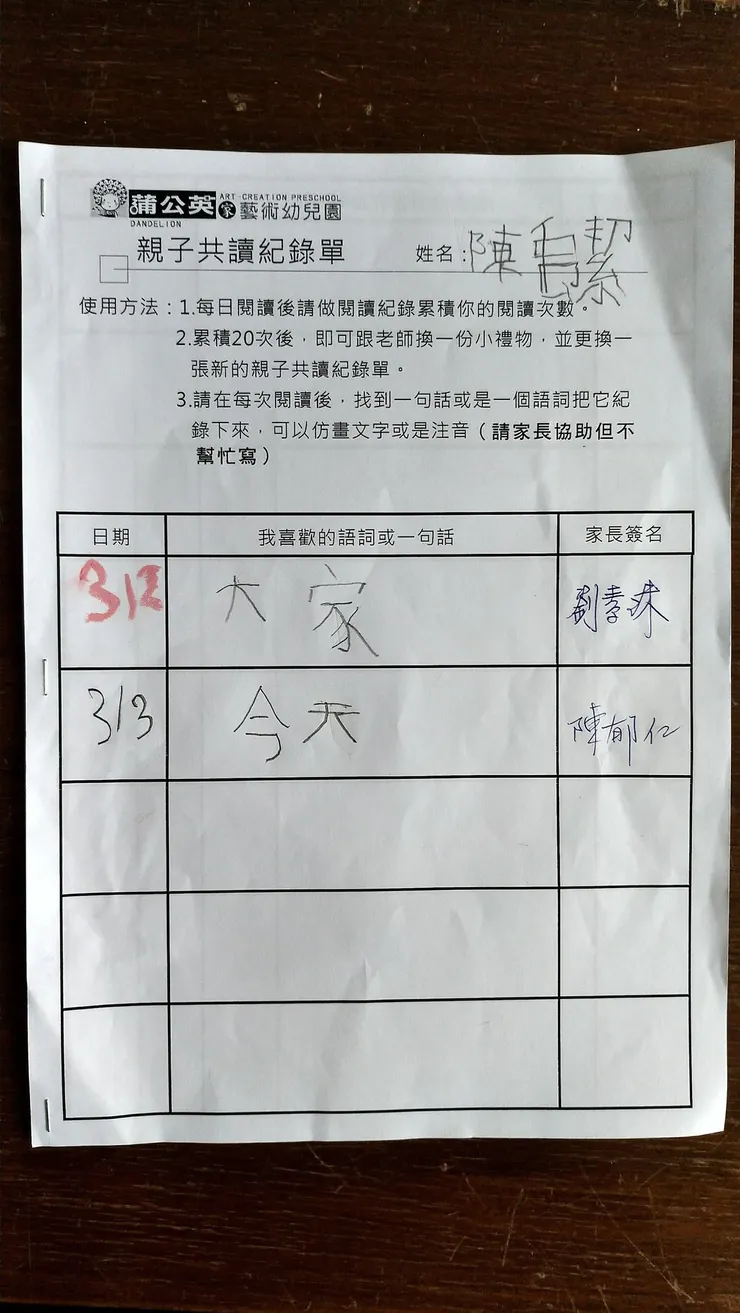 蒲公英 ART-CREATION PRESCHOOL
家 藝術幼兒園
DANDELION
親子共讀紀錄單 姓名:陳 絜
使用方法:1.每日閱讀後請做閱讀紀錄累積你的閱讀次數。
2.累積20次後,即可跟老師換一份小禮物,並更換一
張新的親子共讀紀錄單。
3.請在每次閱讀後,找到一句話或是一個語詞把它紀
錄下來,可以仿畫文字或是注音(請家長協助但不
幫忙寫)
日期 我喜歡的語詞或一句話 家長簽名
3/2 大家 劉
3/3 今天 陳郁仁